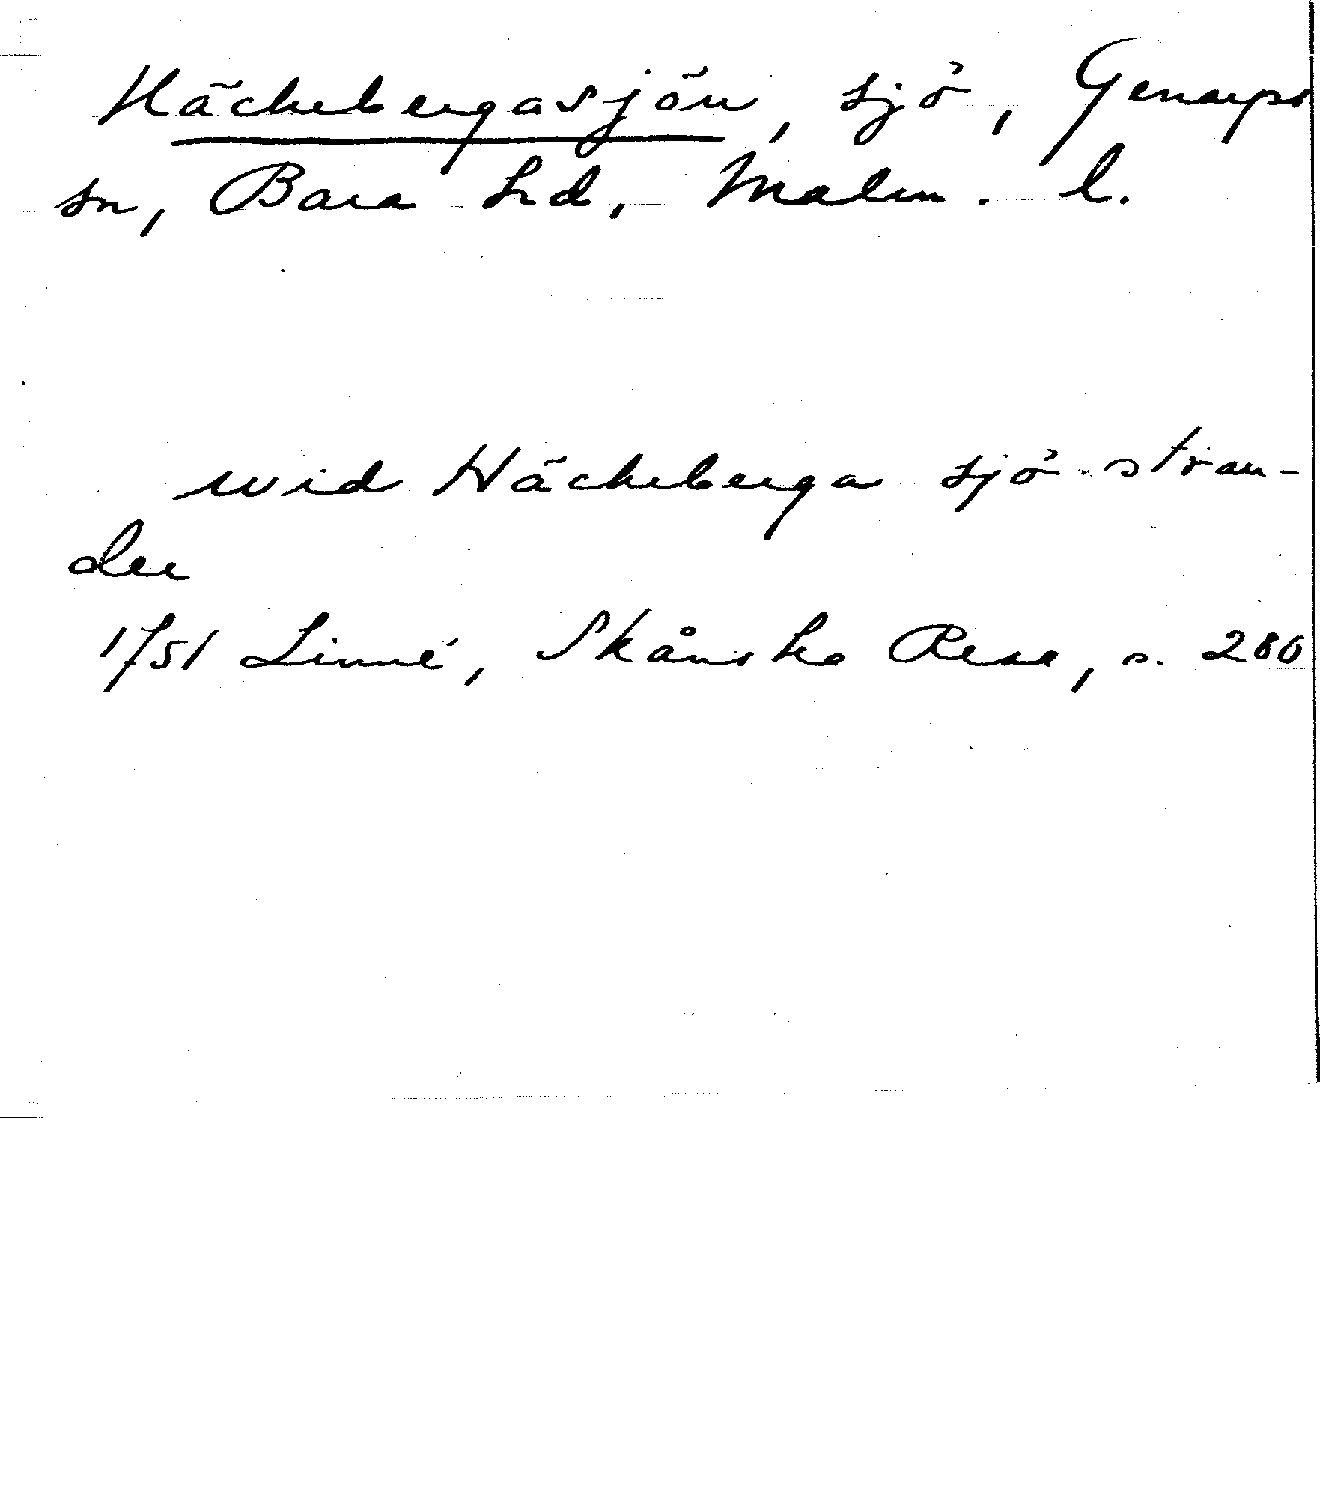 Häckebergasjön, sjö, Genarps
sn, Bara hd, Malm. l.
wid Häckeberga sjö stran-
den
1751 Linné, Skånska Resa, s. 280